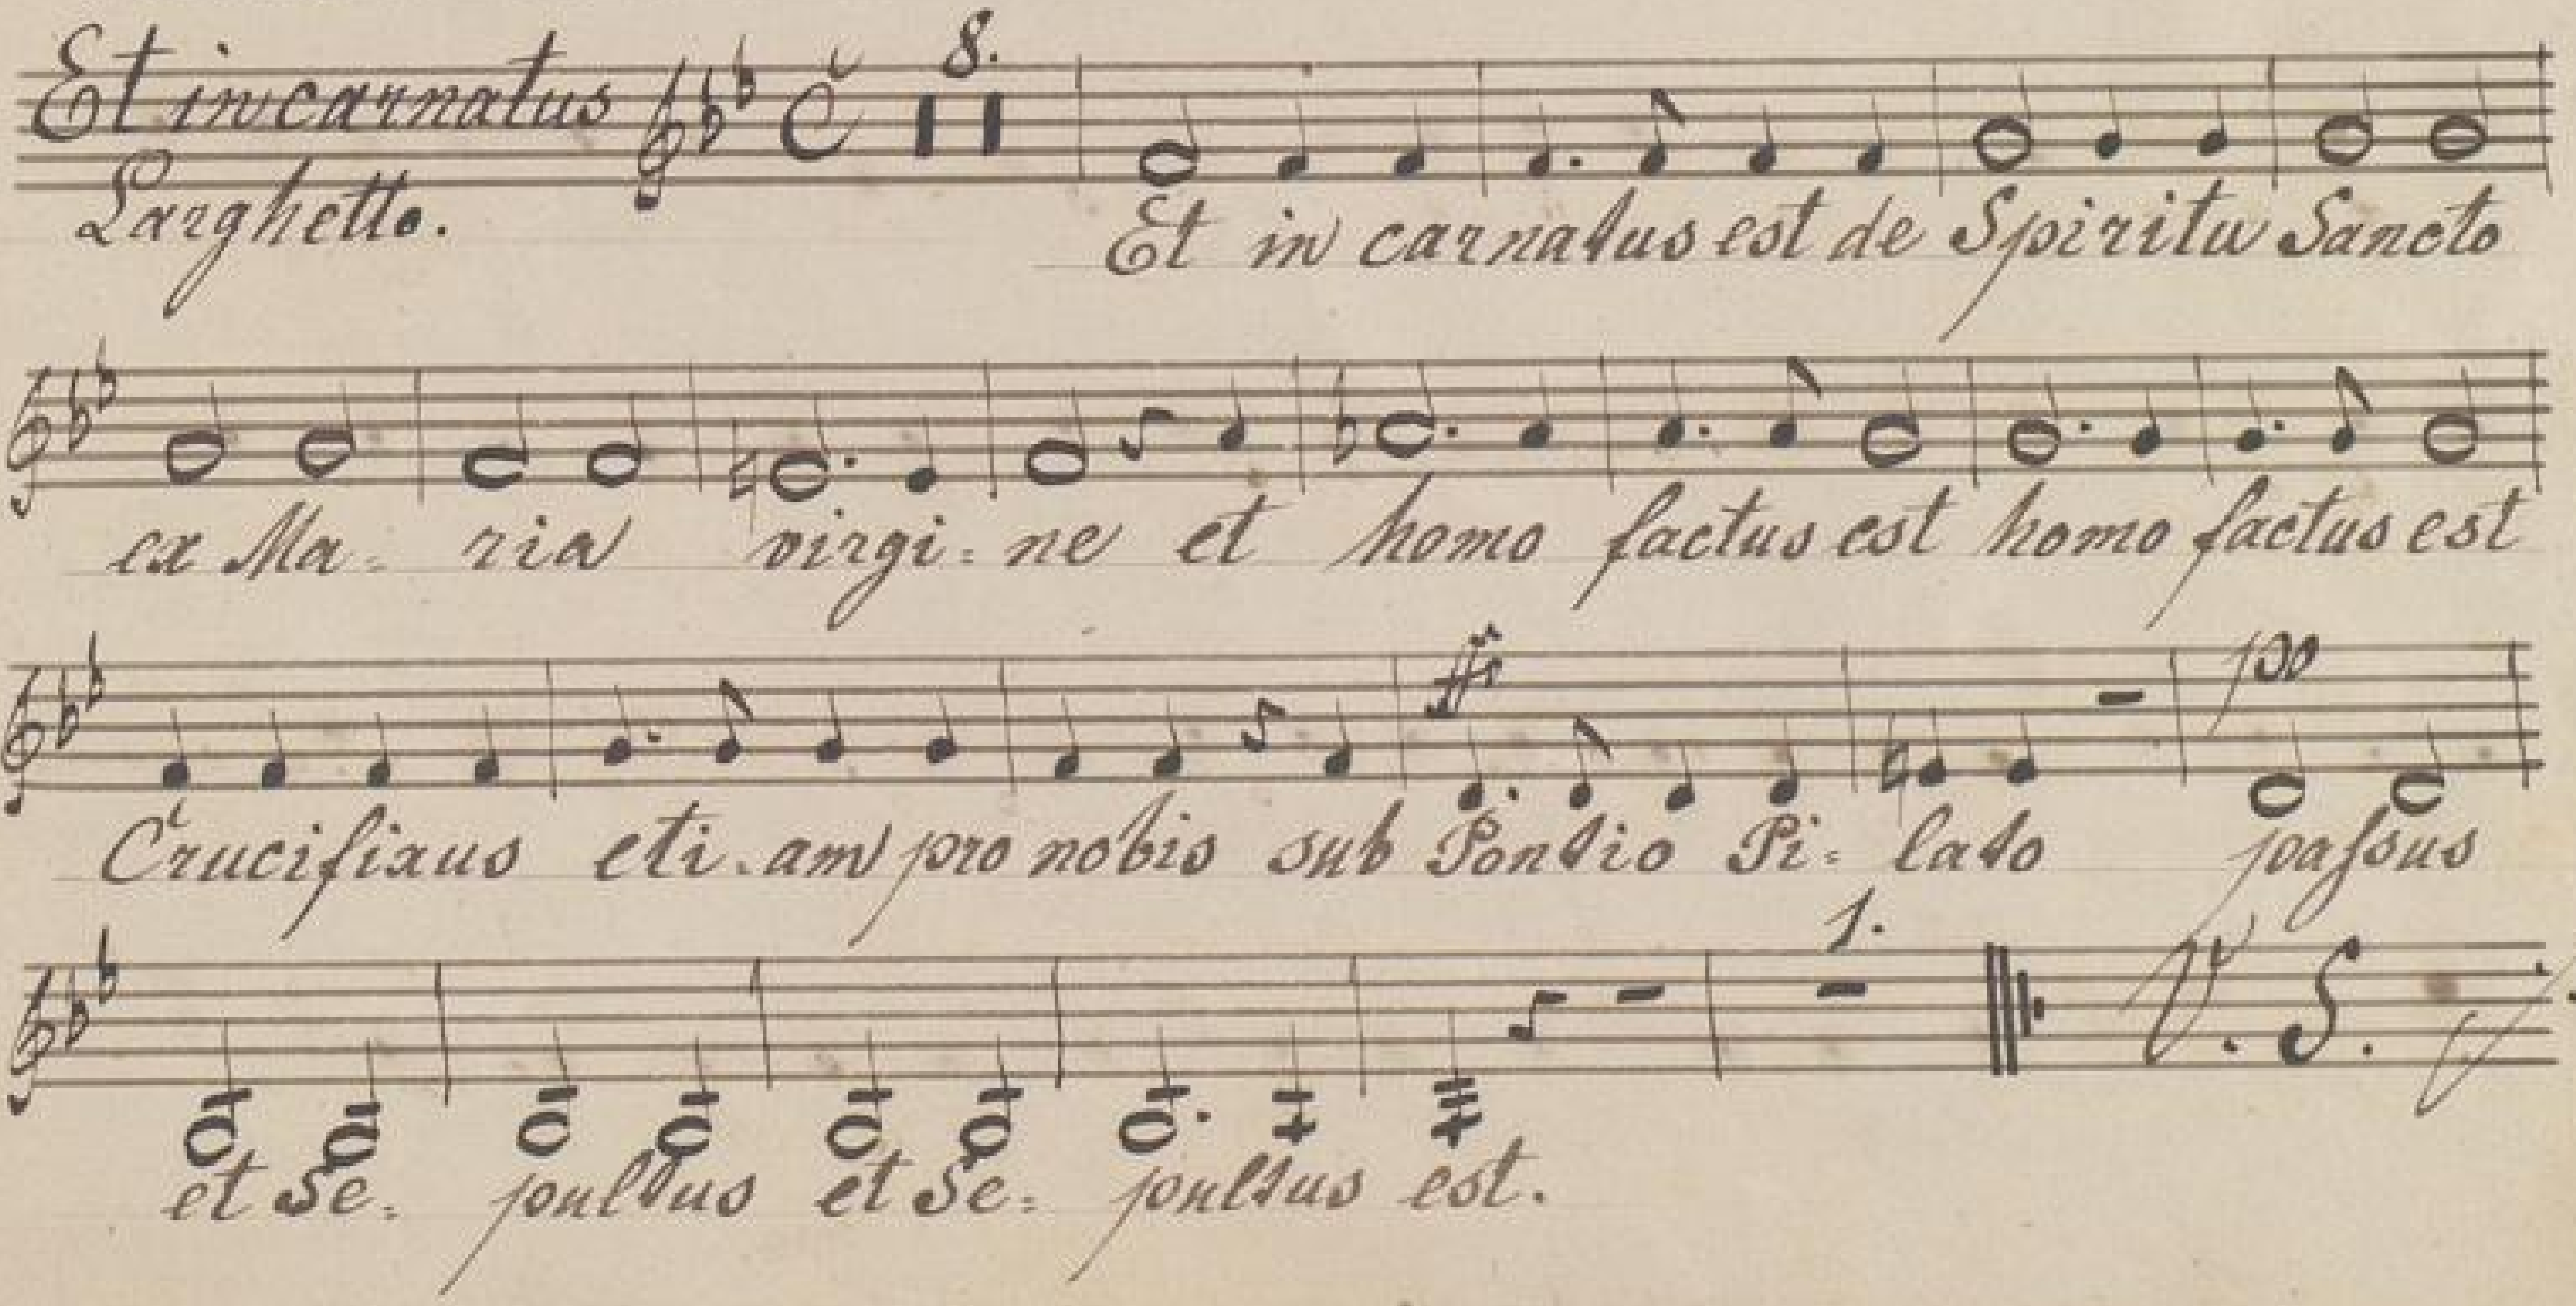 8.
Et incarnatus
Larghetto.
Et in carnatus est de Spiritu Sancto
ex Ma- ria virgi= ne et homo factus est homo factus est
ff
po
Crucifixus eti-am pro nobis sub Pontio Pi= lato passus
1.
V. S.
et Se= pultus et Se= pultus est.